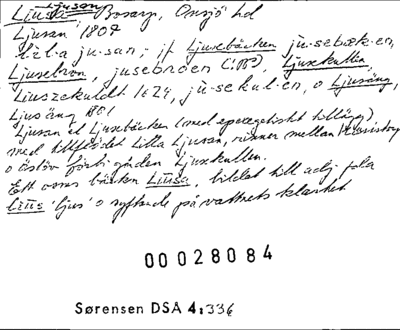 Ljusa Ljusan Bosarp, Onsjö hd
Ljusan 1802
lilla ju·san, jf Ljusebäcken ju·sebæk·en,
Ljusebron, jusebroen (:W), Ljuskullen,
Liuszekuldt 1624, ju·sekul·en, o Ljusäng,
Ljusäng 1801
Ljusan el Ljusebäcken (med epexegetiskt tillägg),
med tillflödet Lilla Ljusan, rinner mellan
o förbi gården Ljuskullen.
Ett bäcken Liusa, bildat till adj. fda
lius 'ljus' o syftande på vattnets klarhet
00028084
Sørensen DSA 4:336